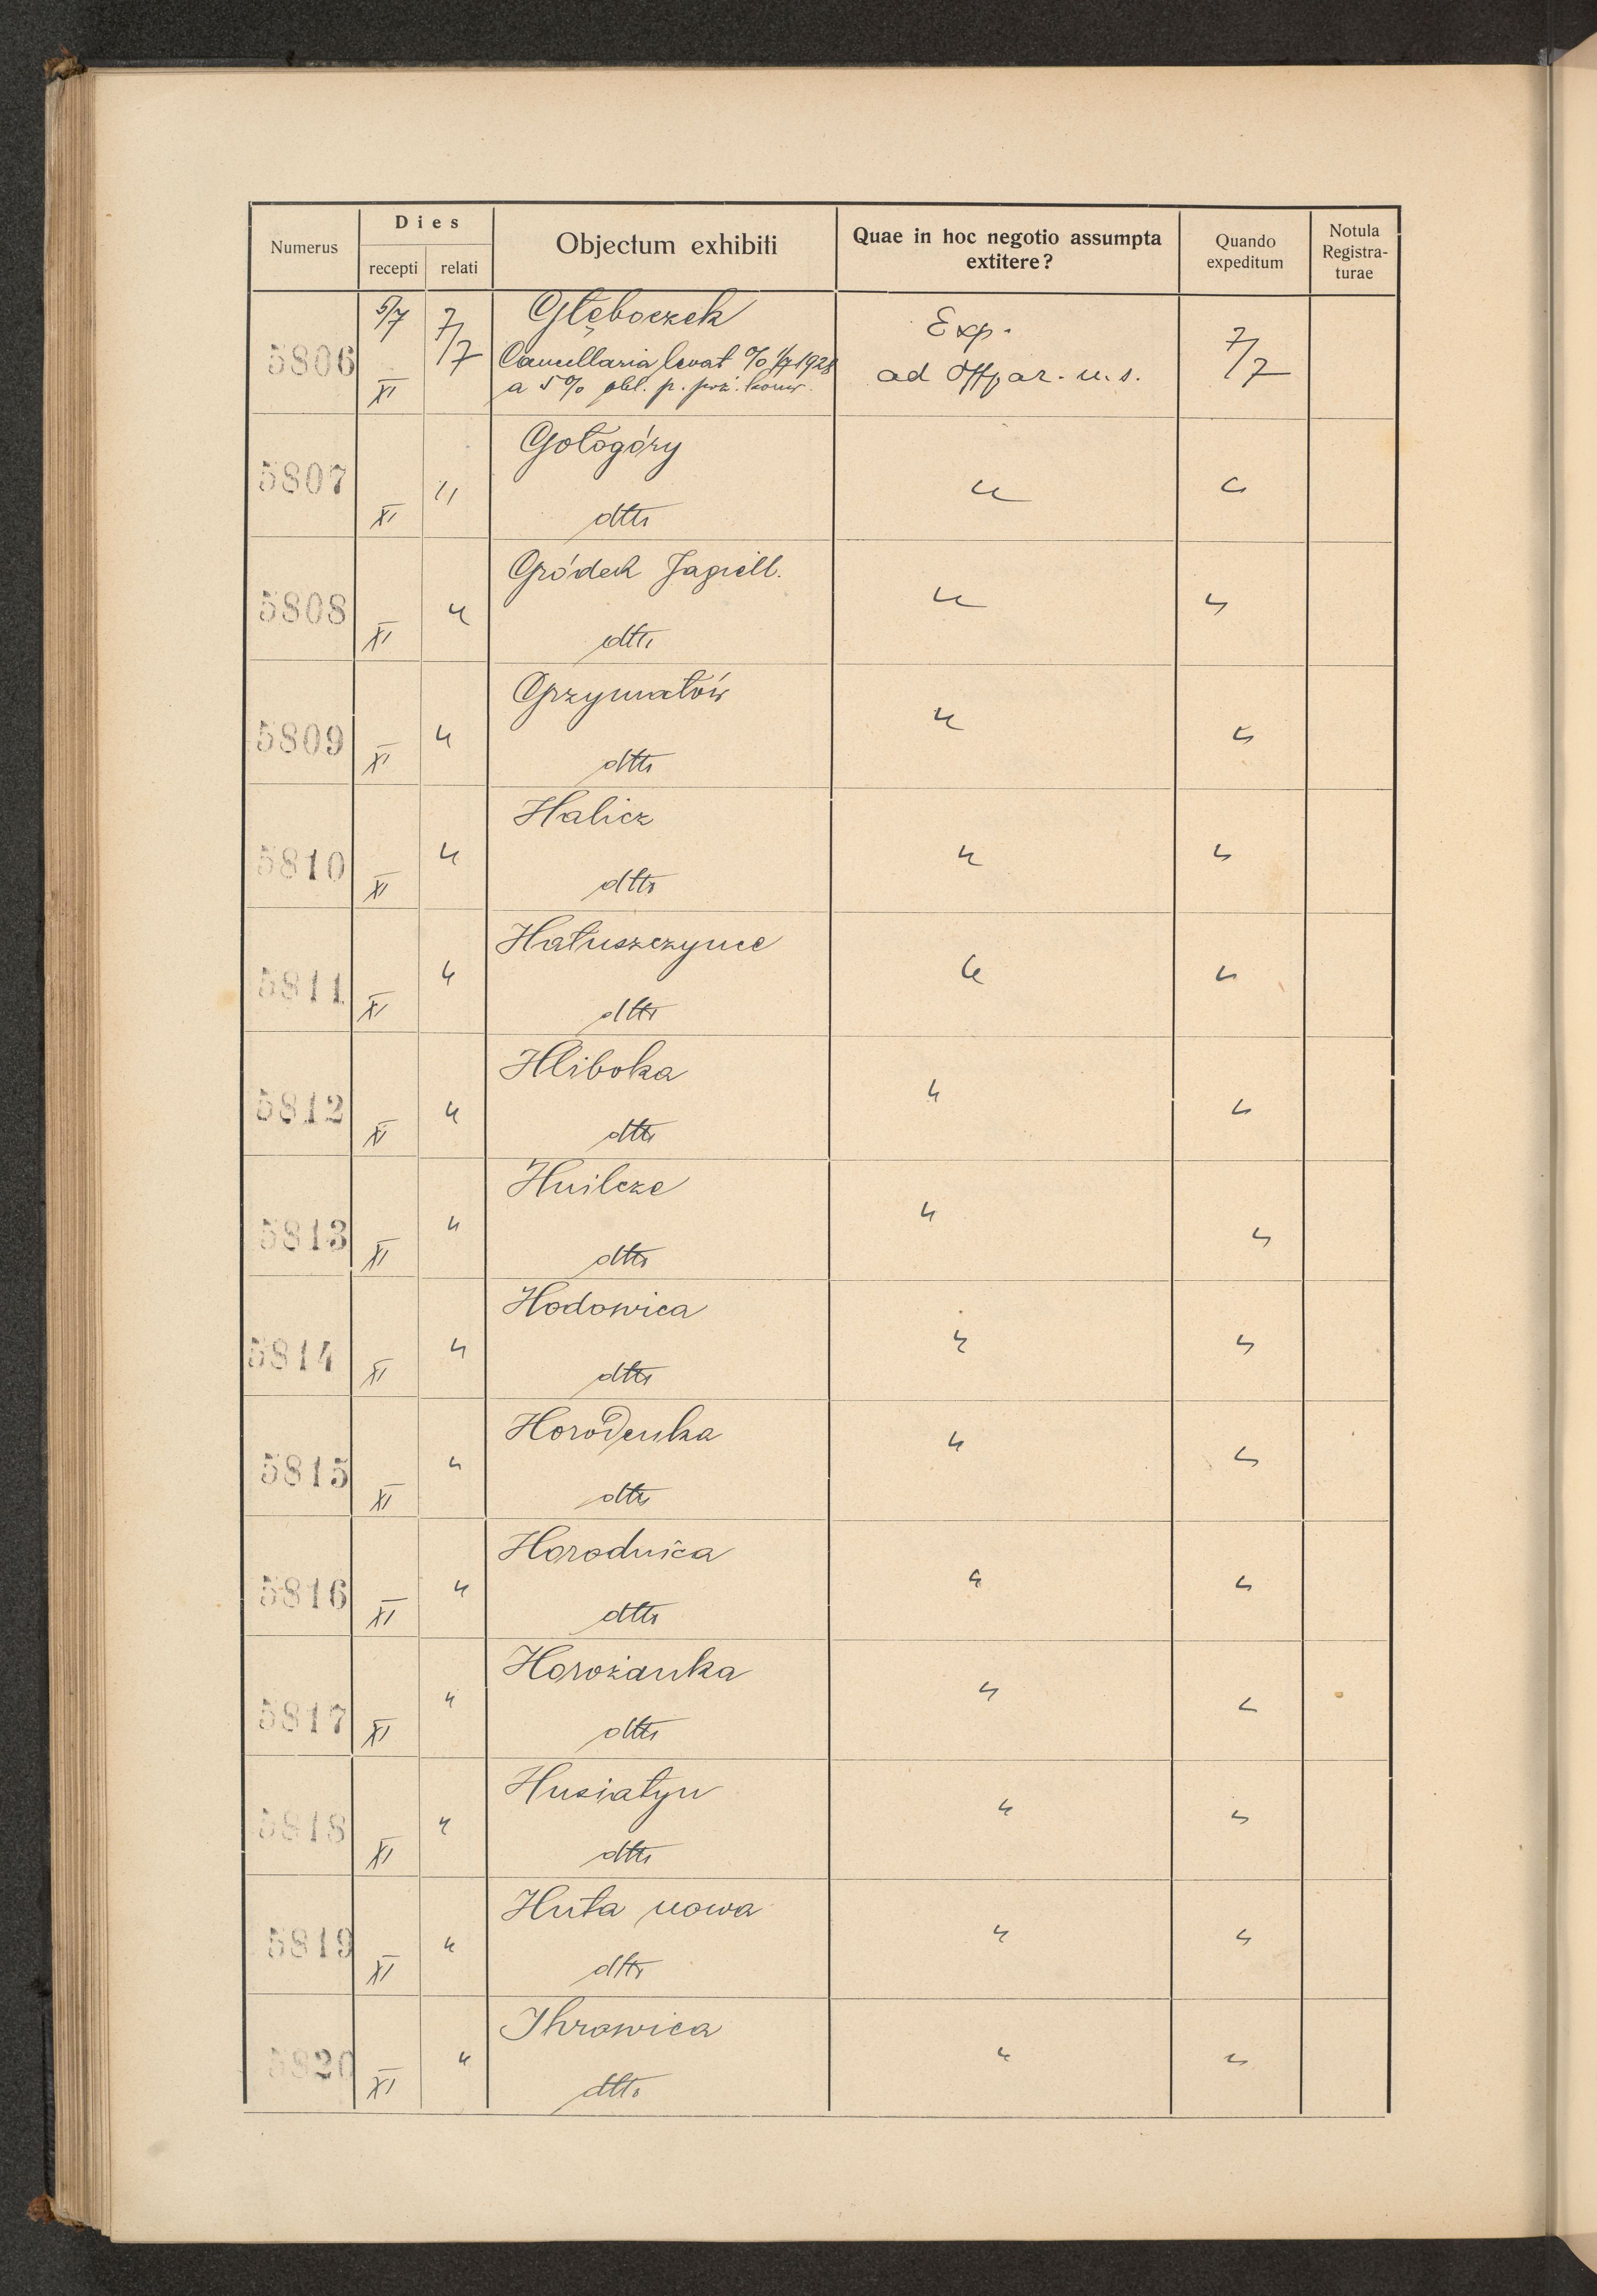 Numerus Dies recepti relati Objectum exhibiti Quae in hoc negotio assumpta extitere? Quando expeditum Notula Registra-turae
5806 5/7 XI 7/7 Głęboczek Exp. 7/7
Cancellaria levat % 1/7 1928 ad Offpar. u. s.
a 5% obl. p. poż. konw.
5807 XI " Gołogóry " "
dtto
5808 XI " Gródek Jagiell. " "
dtto
5809 XI " Grzymałów " "
dtto
5810 XI " Halicz " "
dtto
5811 XI " Hałuszczyńce " "
dtto
5812 XI " Hliboka " "
dtto
5813 XI " Hnilcze " "
dtto
5814 XI " Hodowica " "
dtto
5815 XI " Horodenka " "
dtto
5816 XI " Horodnica " "
dtto
5817 XI " Horożanka " "
dtto
5818 XI " Husiatyn " "
dtto
5819 XI " Huta nowa " "
dtto
5820 XI " Ihrowica " "
dtto